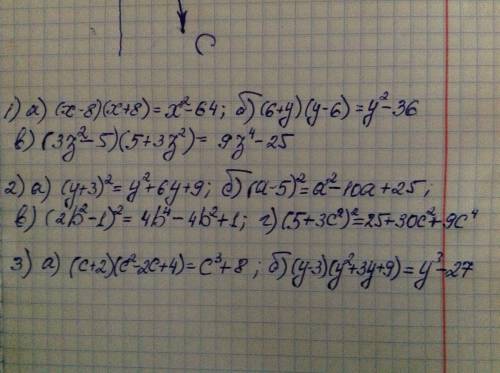 C
1) а) (x-8)(x+8)=x²-64; б) (6+y)(y-6)=y²-36
в) (3z²-5)(5+3z²)= 9z⁴-25
2) а) (y+3)²=y²+6y+9; б) (a-5)²=a²-10a+25;
в) (2b²-1)²=4b⁴-4b²+1; г) (5+3c²)²=25+30c²+9c⁴
3) а) (c+2)(c²-2c+4)=c³+8; б) (y-3)(y²+3y+9)=y³-27